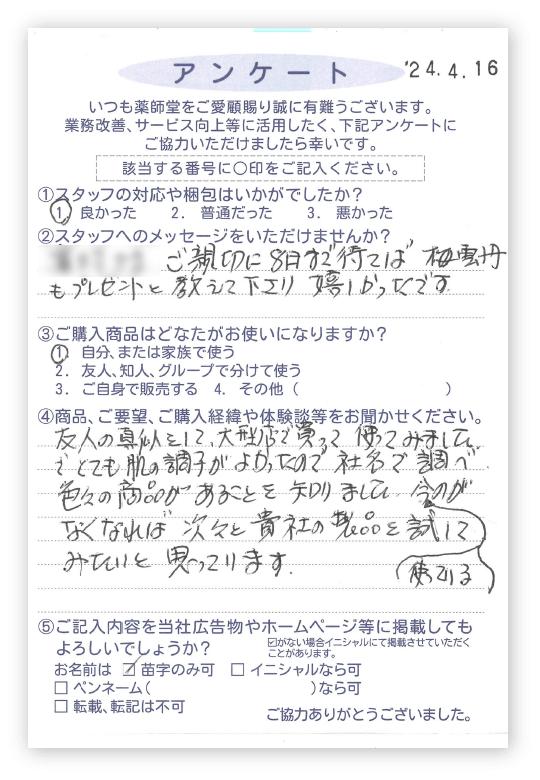 アンケート
'24.4.16
いつも薬師堂をご愛顧賜り誠に有難うございます。
業務改善、サービス向上等に活用したく、下記アンケートに
ご協力いただけましたら幸いです。
該当する番号に○印をご記入ください。
①スタッフの対応や梱包はいかがでしたか?
1. 良かった 2. 普通だった 3. 悪かった
②スタッフへのメッセージをいただけませんか?
ご親切に8日まで待てば 梅雲丹
もプレゼントと教えて下さり 嬉しかったです
③ご購入商品はどなたがお使いになりますか?
1. 自分、または家族で使う
2. 友人、知人、グループで分けて使う
3. ご自身で販売する 4. その他( )
④商品、ご要望、ご購入経緯や体験談等をお聞かせください。
友人の真似をして、大型店で買って 使ってみました
で とても肌の調子がよかったので 社名で調べ
色々の商品があることを知りました 今のが
なくなれば 次々と貴社の製品を試して
みたいと思っています。
使っている
⑤ご記入内容を当社広告物やホームページ等に掲載しても
よろしいでしょうか?
☑がない場合イニシャルにて掲載させていただく
ことがあります。
お名前は ☑ 苗字のみ可 □ イニシャルなら可
□ ペンネーム( )なら可
□ 転載、転記は不可
ご協力ありがとうございました。